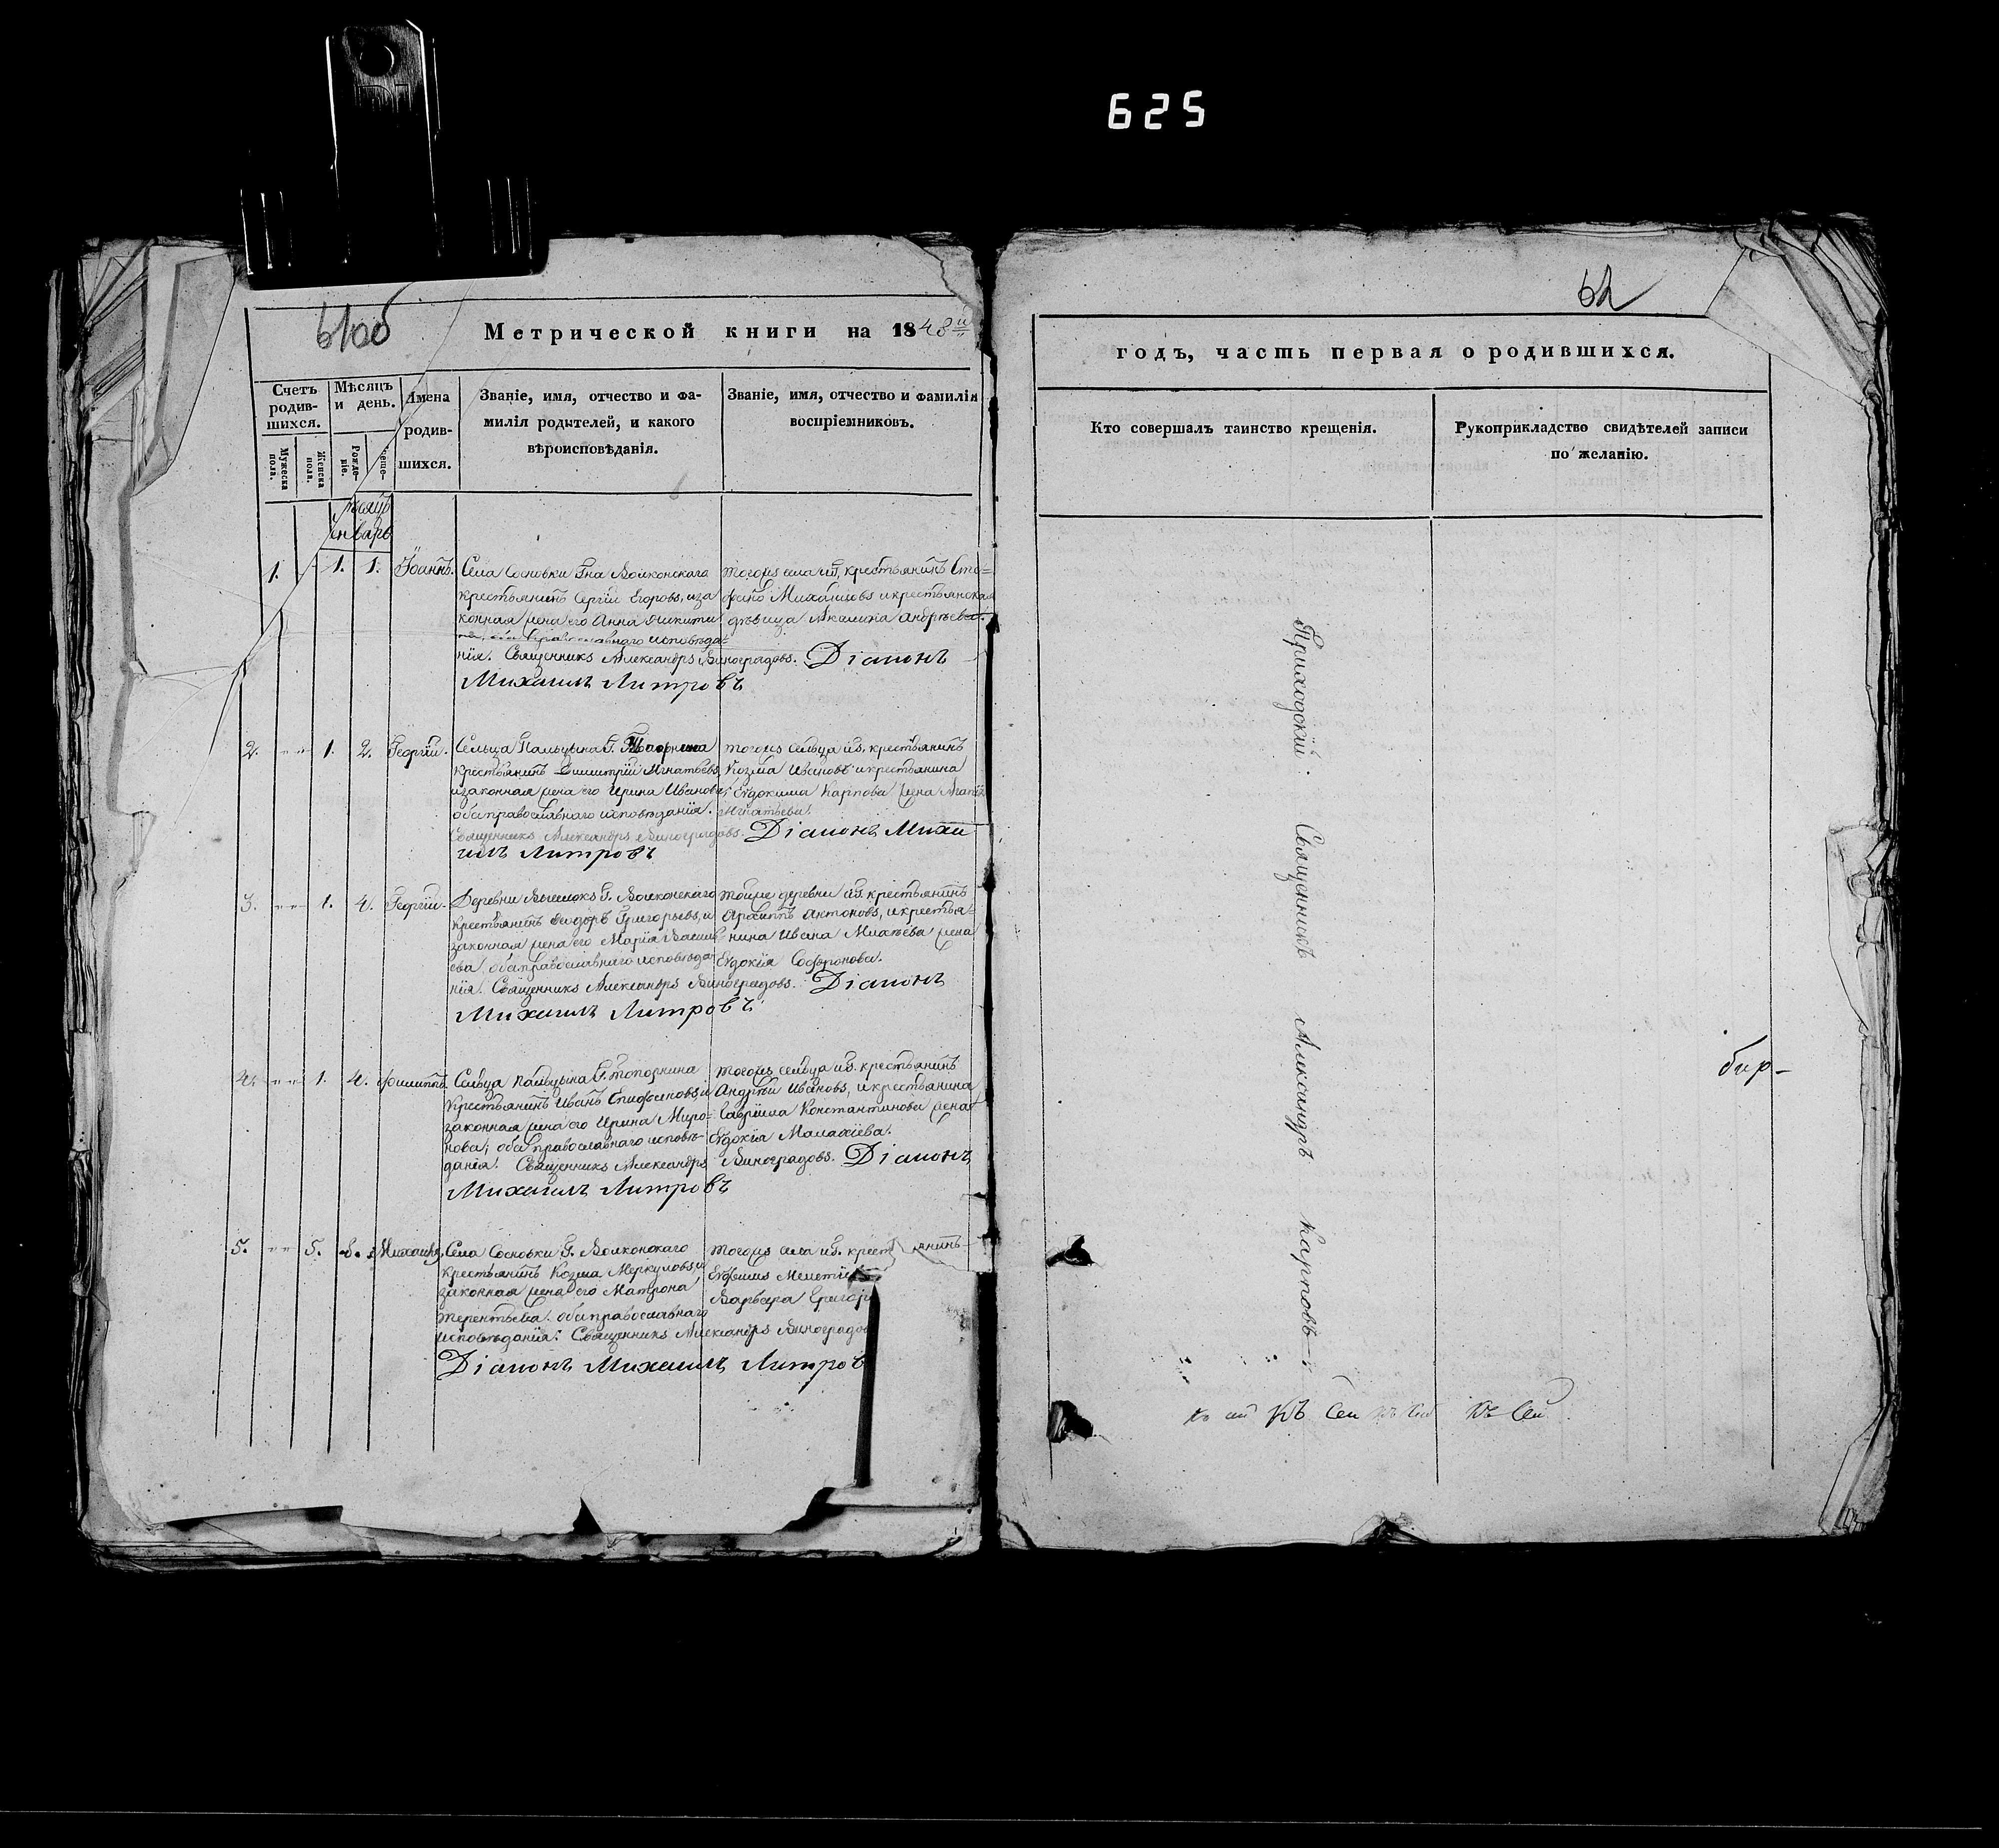 625
61 об
Метрической книги на 1848й
Счетъ родив-шихся.
Мужеска пола.
Женска пола.
Мѣсяцъ и день.
Рожде-ніе.
Имена родив-шихся.
Званіе, имя, отчество и фа-
милія родителей, и какого
вѣроисповѣданія.
Званіе, имя, отчество и фамилія
воспріемниковъ.
Январь
1. 1. 1. Іоаннъ. Села Сосновки Гна Волконскаго
крестьянинъ Сергій Егоровъ, и за
конная жена его Анна Никити
на, оба православнаго исповѣда=
нія. Священникъ Александръ Виноградовъ. Діаконъ
Михаилъ Литровъ
тогожъ села и Г. крестьянинъ Сте=
фанъ Михайловъ и крестьянская
дѣвица Акилина Андреева.
2. 1. 2. Георгій. Сельца Пальцына Г. Топорнина
крестьянинъ Димитрій Игнатьевъ,
и законная жена его Ирина Иванова,
оба православнаго исповѣданія.
Священникъ Александръ Виноградовъ. Діаконъ Миха
илъ Литровъ
тогожъ сельца и Г. крестьянинъ
Козма Ивановъ и крестьянина
Евдокима Карпова жена
Игнатьева.
3. 1. 4. Георгій. Деревни Г. Волконскаго
крестьянинъ Ѳедоръ Григорьевъ, и
законная жена его Марія Василь
ева, оба православнаго исповѣда
нія. Священникъ Александръ Виноградовъ. Діаконъ
Михаилъ Литровъ
тойже деревни и Г. крестьянинъ
Архиппъ Антоновъ, и крестья=
нина Ивана жена
Евдокія Софронова.
4. 1. 4. Филиппъ. Сельца Пальцына Г. Топорнина
крестьянинъ Иванъ Епифановъ, и
законная жена его Ирина Миро=
нова, оба православнаго исповѣ-
данія. Священникъ Александръ Виноградовъ. Діаконъ
Михаилъ Литровъ
тогожъ сельца и Г. крестьянинъ
Андрей Ивановъ, и крестьянина
Гавріила Константинова жена
Евдокія Малахіева.
5. 5. 8. Михаилъ. Села Сосновки Г. Волконскаго
крестьянинъ Козма Меркуловъ, и
законная жена его Матрона
Терентьева. оба православнаго
исповѣданія. Священникъ Александръ Виноградов
Діаконъ Михаилъ Литров
тогожъ села и Г. крест янинъ
Варвара Григор
62
годъ, часть первая о родившихся.
Кто совершалъ таинство крещенія.
Рукоприкладство свидѣтелей записи
по желанію.
Приходскій Священникъ Александръ Карповъ
бир-
Къ сей Къ Сей